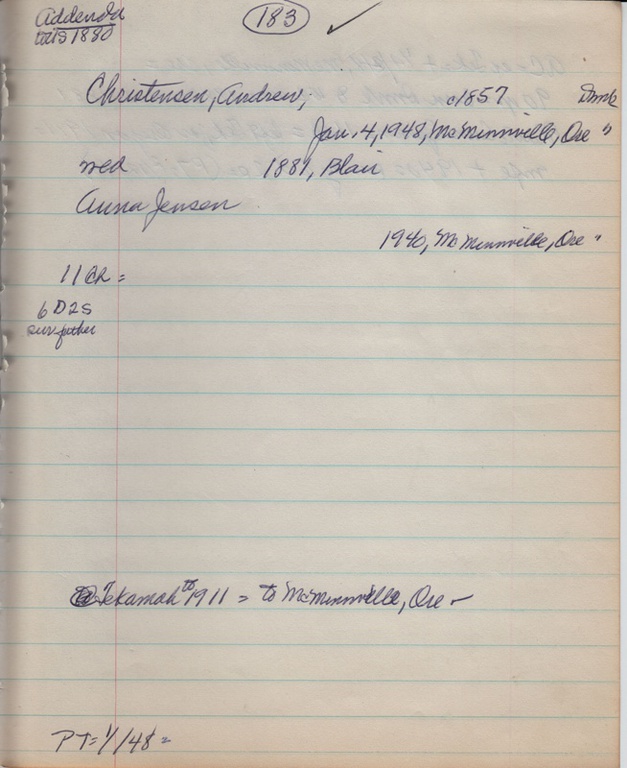 Addenda
183 ✓
to 1880
Christensen, Andrew, c1857 Dmk
Jan. 4, 1948, McMinnville, Ore "
wed 1881, Blair
Anna Jensen
1940, McMinnville, Ore "
11 ch =
6 D 2 S
surv father
@ Tekamah to 1911 = to McMinnville, Ore -
PT = 1/48 =